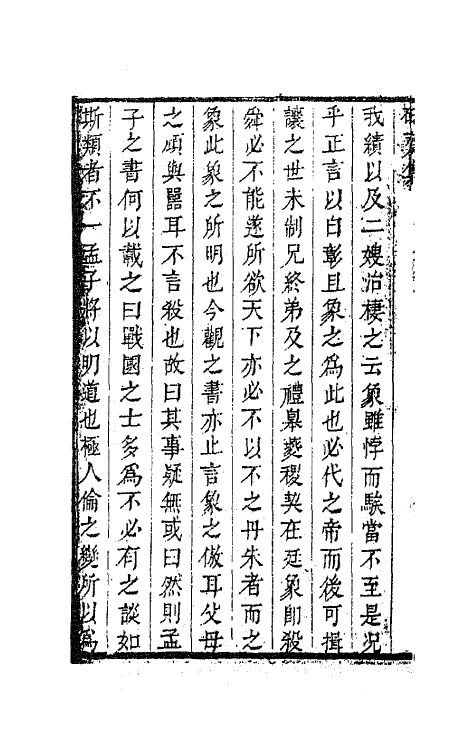 我績以及二嫂治棲之云象雖悖而騃當不至是况
乎正言以白彰且象之為此也必代之帝而後可揖
讓之世未制兄終弟及之禮臯夔稷契在廷象即殺
舜必不能遂所欲天下亦必不以不之丹朱者而之
象此象之所明也今觀之書亦止言象之傲耳父母
之頑與嚚耳不言殺也故曰其事疑無或曰然則孟
子之書何以載之曰戰國之士多為不必有之談如
斯類者不一孟子將以明道也極人倫之變所以為